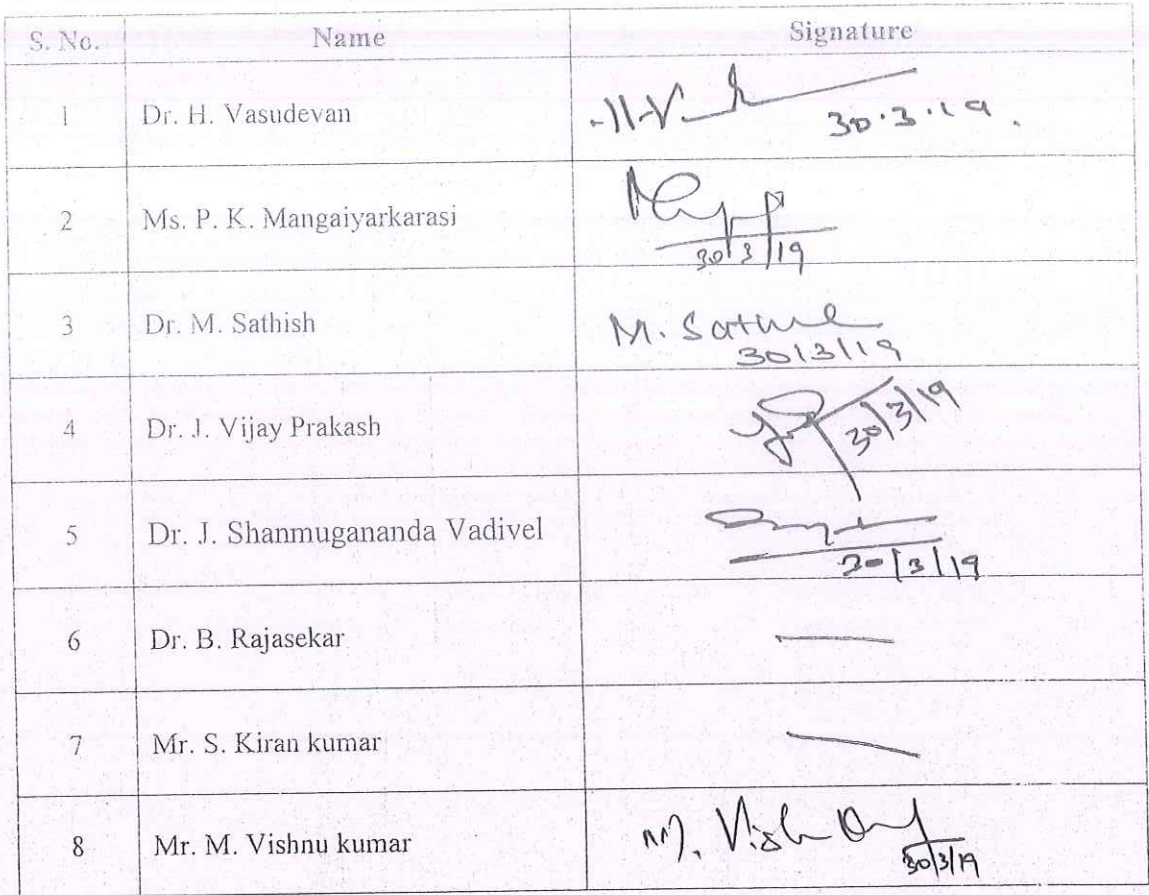 S. No. Name Signature
1 Dr. H. Vasudevan 30.3.19.
2 Ms. P. K. Mangaiyarkarasi
30/3/19
3 Dr. M. Sathish M.
30/3/19
4 Dr. J. Vijay Prakash 30/3/19
5 Dr. J. Shanmugananda Vadivel
30/3/19
6 Dr. B. Rajasekar —
7 Mr. S. Kiran kumar —
8 Mr. M. Vishnu kumar M.
30/3/19